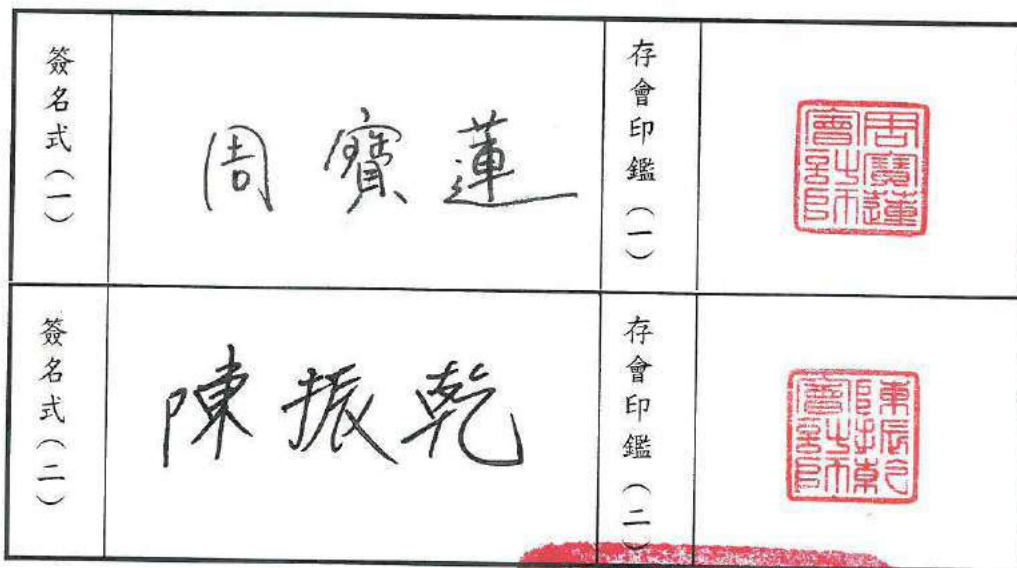 簽名式(一)
周寶蓮
存會印鑑(一)
周寶蓮會計師
簽名式(二)
陳振乾
存會印鑑(二)
陳振乾會計師